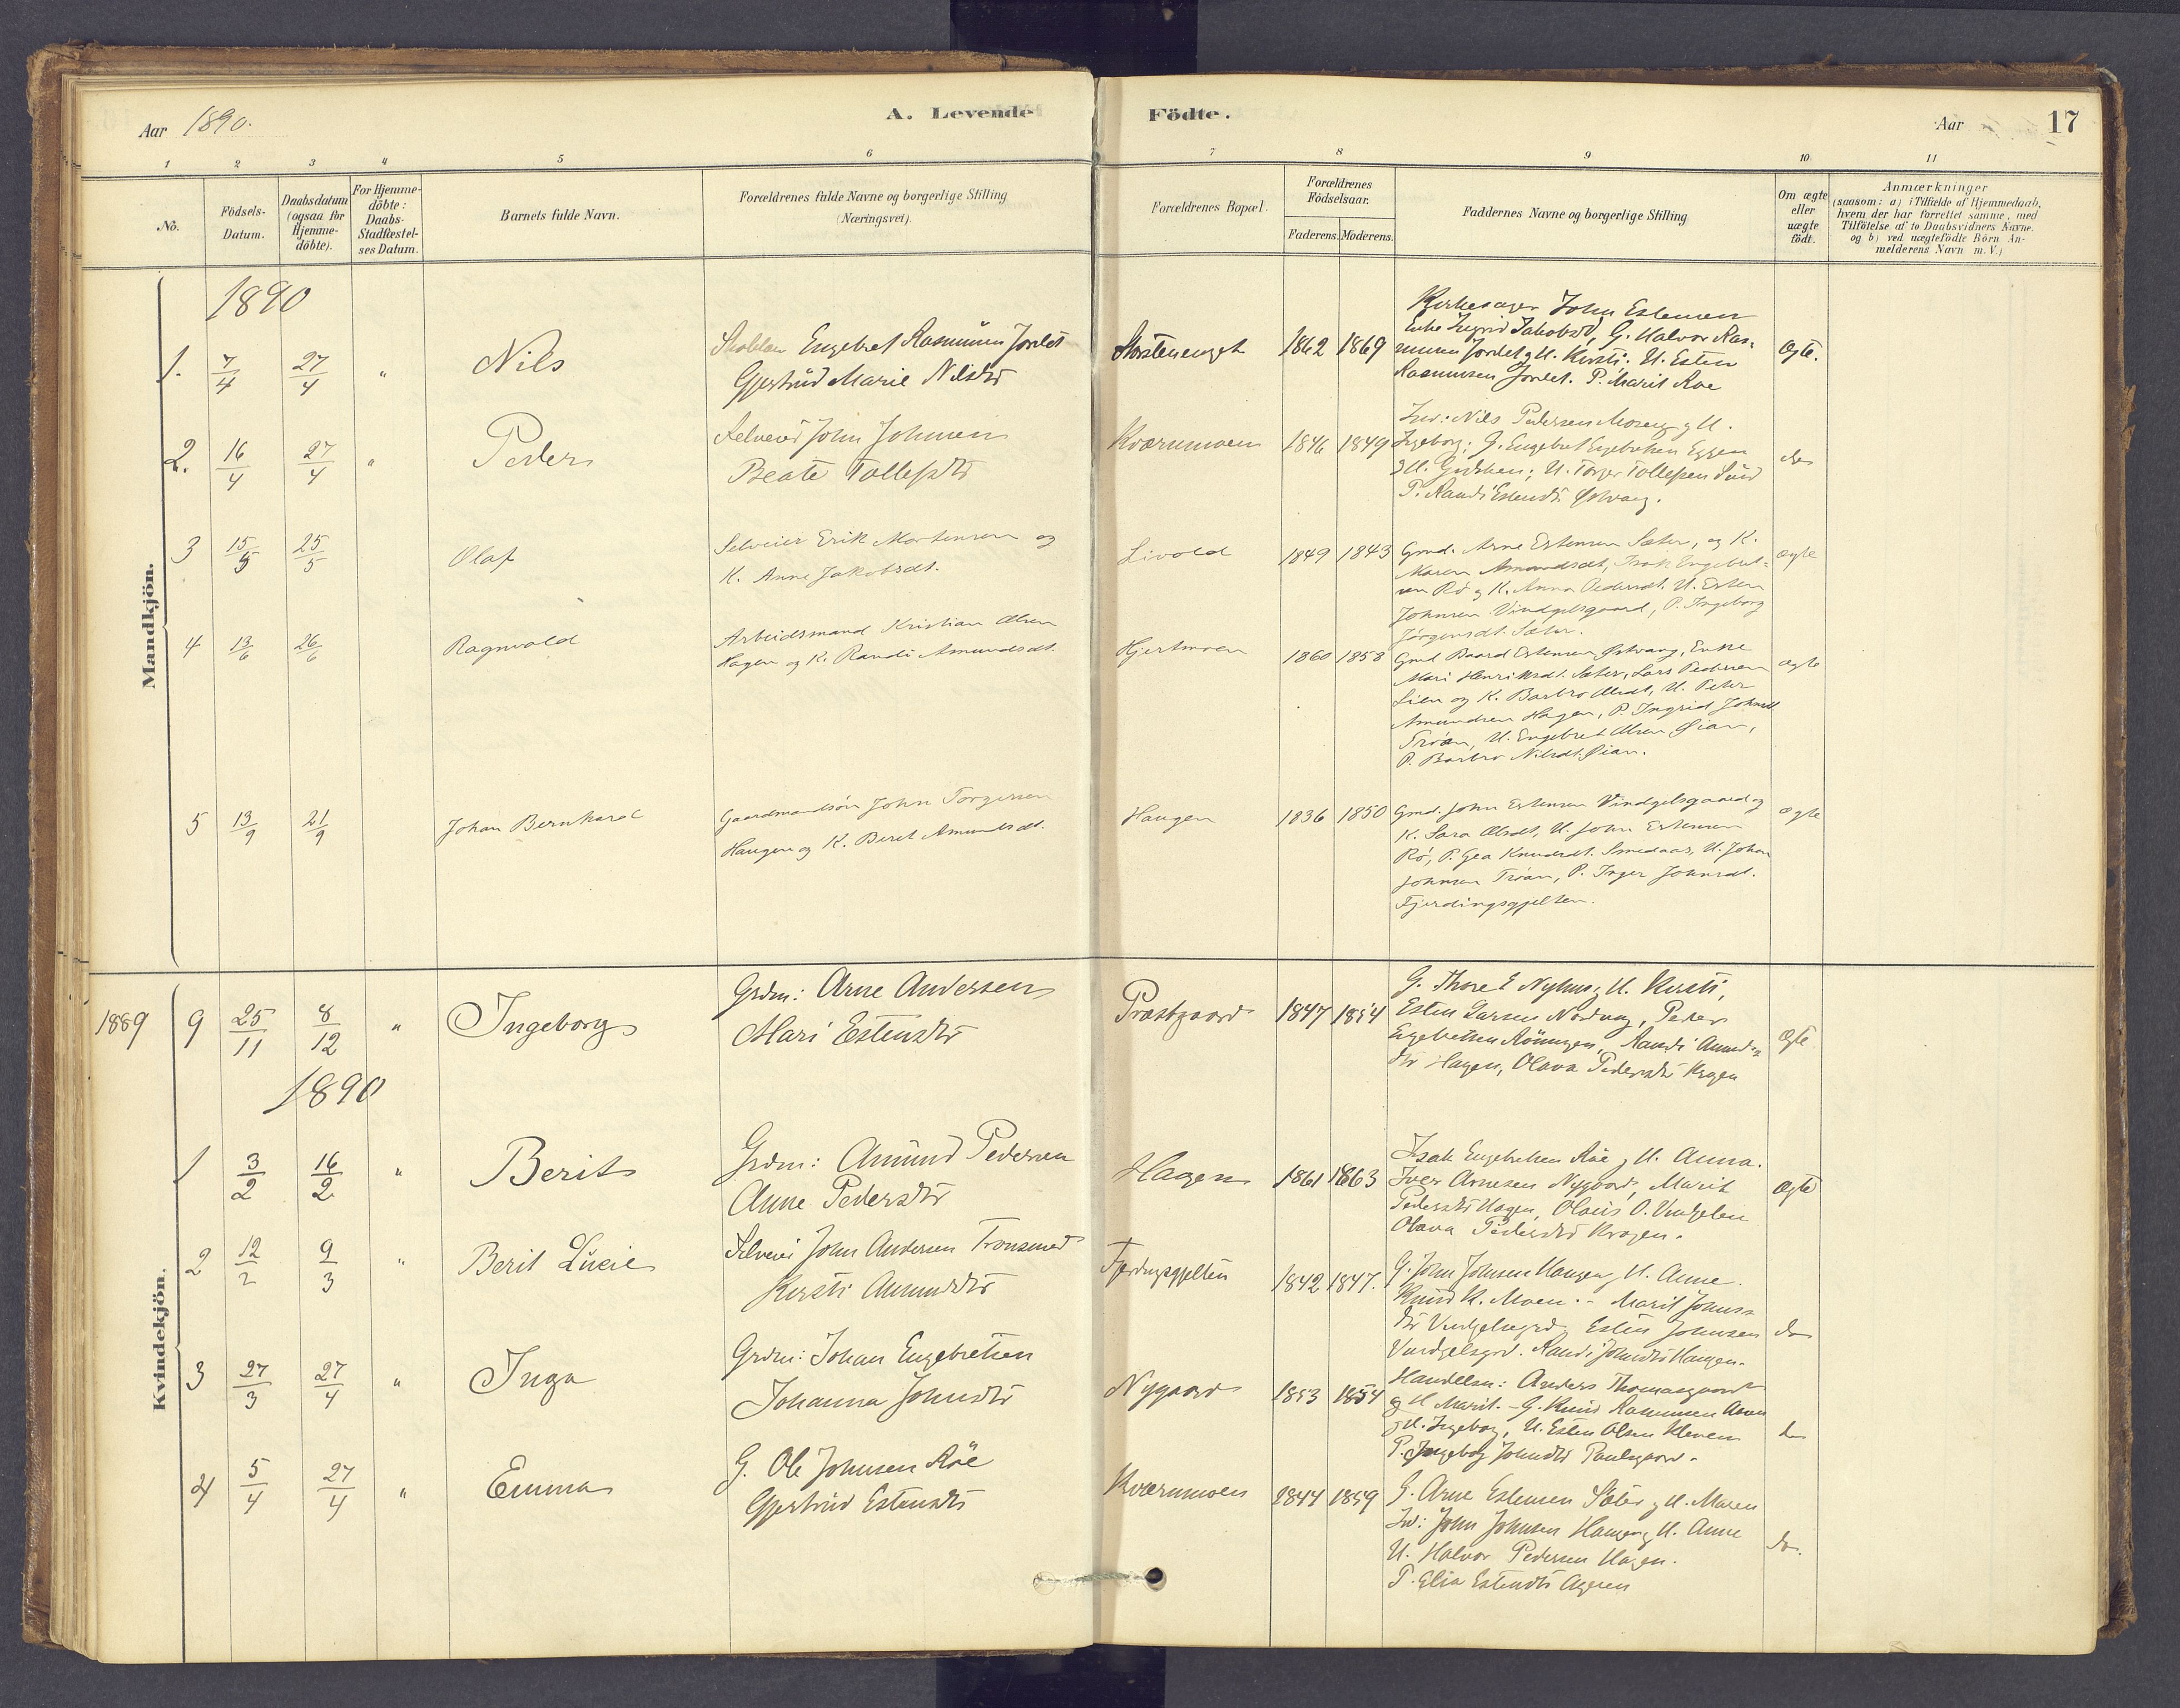 Aar 1890.
A. Levende Födte.
Aar 17
1 2 3 4 5 6 7 8 9 10 11
No.
Födsels-
Datum.
Daabsdatum
(ogsaa for
Hjemme-
döbte).
For Hjemme-
döbte:
Daabs-
Stadfæstel-
ses Datum.
Barnets fulde Navn.
Forældrenes fulde Navne og borgerlige Stilling
(Næringsvei).
Forældrenes Bopæl.
Forældrenes
Födselsaar.
Faderens. Moderens.
Faddernes Navne og borgerlige Stilling
Om ægte
eller
uægte
födt.
Anmærkninger
(saasom: a) i Tilfælde af Hjemmedaab,
hvem der har forrettet samme, med
Tilföielse af to Daabsvidners Navne,
og b) ved uægtefödte Börn An-
melderens Navn m. V.)
Mandkjön.
1890
1. 7/4 27/4 " Nils
Engebret Rasmusen Jordet
Gjertrud Marie Nilsdtr
1862 1869
John Estensen
Enke Ingrid Jakobsd, G. Halvor Ras-
musen Jordet g H. Kirsti; U. Esten
Rasmussen Jordet. P. Marit Roe
Ægte.
2. 16/4 27/4 " Peder
Selveier John Johnsen
Beate Tollefsdtr
Kværnmoen 1846 1849
Nils Pedersen Moseng g H.
Ingeborg; G. Engebret Engebretsen Eggen
g H. U. Torger Tollefsen
P. Randi Estensdtr Østvang.
do
3 15/5 25/5 Olaf
Selveier Erik Mortensen og
K. Anne Jakobsdt.
Livold 1849 1843
Gmd. Arne Estensen Sæter, og K.
Maren Amundsdt, Isak Engebret-
sen Rö og K. Anna Pedersdt. U. Esten
Johnsen Vindgelsgaard, P. Ingeborg
Jörgensdt. Sæter.
ægte
4 13/6 26/6 Ragnvald
Arbeidsmand Kristian Olsen
Hagen og K. Randi Amundsdt.
Hjertmoen 1860 1858
Gmd Baard Estensen Østvang, Enke
Mari Henriksdt. Sæter, Lars Pedersen
Lien og K. Barbro Olsdt, U. Peter
Amundsen Hagen, P. Ingrid Johnsdt
Tröan, U. Engebret Olsen Øian,
P. Barbro Nilsdt. Øian.
ægte
5 13/9 21/9 Johan Bernhard
Gaardmandsön John Torgersen
Haugen og K. Beret Amundsdt.
Haugen 1836 1850
Gmd. John Estensen Vindgelsgaard og
K. Sara Olsdt, U. John Estensen
Rö, P. Gea Knudsdt. Smedaas, U. Johan
Johnsen Tröan, P. Inger Johnsdt.
Fjerdingsgjelten.
ægte
Kvindekjön.
1889 9 25/11 8/12 " Ingeborg
Grdm: Arne Andersen
Mari Estensdtr
Præstgaard 1847 1854
G. Thore E Nyhus, H. Kirsti,
Esten Larsen Nordvang, Peder
Engebretsen Rönningen, Randi Amunds-
dtr Hagen, Olava Pedersdtr Krogen
Ægte
1890
1 3/2 16/2 " Berit
Grdm: Amund Pedersen
Anne Pedersdtr
Hagen 1861 1863
Isak Engebretsen Röe g H. Anna.
Iver Arnesen Nygaard, Marit
Pedersdtr Hagen, Olaus O. Vingelen
Olava Pedersdtr Krogen.
Ægte
2 12/2 9/3 " Berit Lucie
Selveier John Andersen Tronsmed
Kirsti Amundsdtr
Fjerdingsgjelten 1842 1847.
G. John Johnsen Haugen g H. Anne.
Knud K. Moen. - Marit Johns-
dtr Vingelsgrd, Esten Johnsen
Vingelsgrd. Randi Johnsdtr Haugen.
do
3 27/3 27/4 " Inga
Grdm: Johan Engebretsen
Johanna Johnsdtr
Nygaard 1853 1854
Handelsm: Anders Thomasgaard
og H Marit. - G. Knud Rasmusen Aasen
g H. Ingeborg, U. Esten Olsen Kleven
P. Ingeborg Johnsdtr Paulsgaard.
do
4 5/4 27/4 " Emma
G. Ole Johnsen Röe
Gjertrud Estensdtr
Kværnmoen 1844 1859
G. Arne Estensen Sæter g H. Maren
John Johnsen Haugen g H. Anne
U. Halvor Pedersen Hagen.
P. Elia Estensdtr
do.